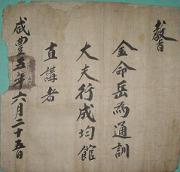 教旨
金命岳為通訓
大夫行成均館
直講者
咸豊五年六月二十五日